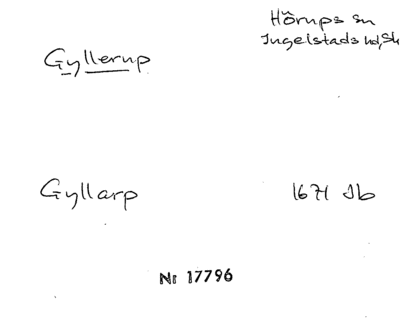 Hörups sn
Ingelstads hd, Sk
Gyllerup
Gyllarp
1671 Jb
Nr 17796